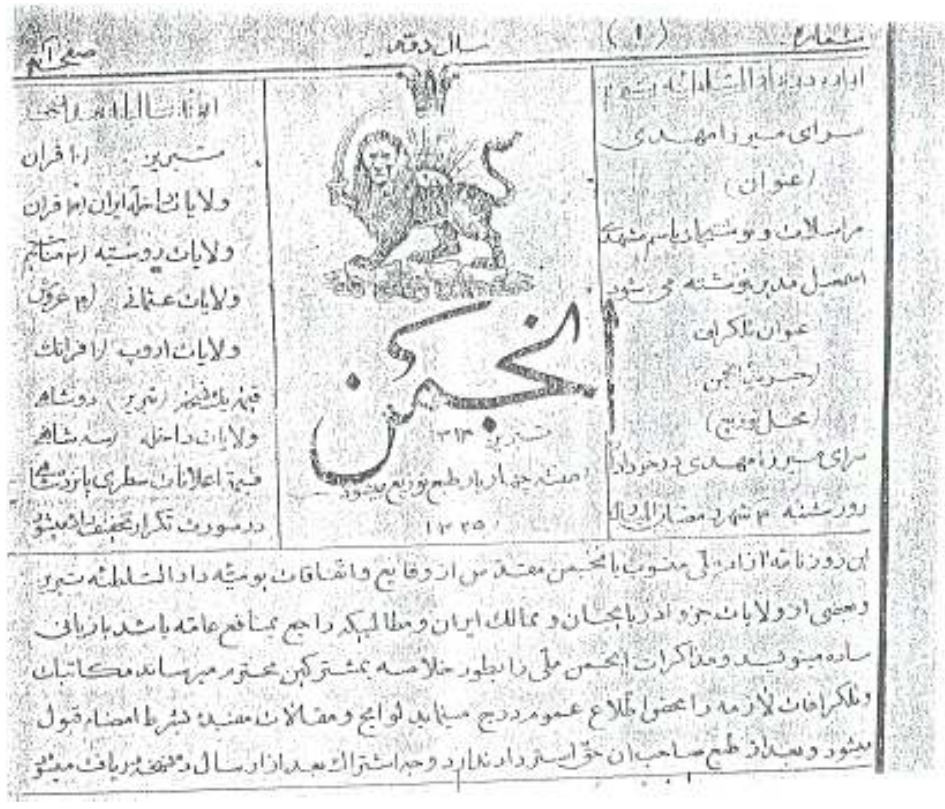 شماره (۱)
سال دوم
صفحه
اداره در دارالسلطنه تبریز
سرای میرزا مهدی
(عنوان)
مراسلات و نوشتجات باسم
مدیر نوشته می شود
عنوان تلگرافی
انجمن
(محل توزیع)
سرای میرزا مهدی در
روز شنبه ۴ شهر رمضان
انجمن
تبریز
هفته چهار بار طبع و توزیع میشود
۱۳۲۵
تبریز قران
ولایات داخله ایران قران
ولایات روسیه منات
ولایات عثمانی
ولایات اروپ فرانک
قیمت یک نمره (تبریز) دو شاهی
ولایات داخله سه شاهی
قیمت اعلانات سطری پانزده شاهی
در صورت تکرار تخفیف داده میشود
این روزنامه آزاد ملی منسوب بانجمن مقدس از وقایع و اتفاقات یومیه دارالسلطنه تبریز
و بعضی از ولایات جزو آذربایجان و ممالک ایران و مطالبیکه راجع بمنافع عامه باشد با زبانی
ساده مینویسد و مذاکرات انجمن ملی را بطور خلاصه بمشترکین محترم میرساند مکاتبات
و تلگرافات لازمه را محض اطلاع عموم درج مینماید لوایح و مقالات مفیده بشرط امضاء قبول
میشود و بعد از طبع صاحب ان حق استرداد ندارد وجه اشتراک بعد از ارسال دریافت میشود